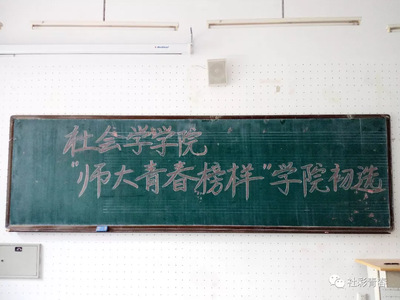 社会学学院
“师大青春榜样”学院初选
社彩青酱